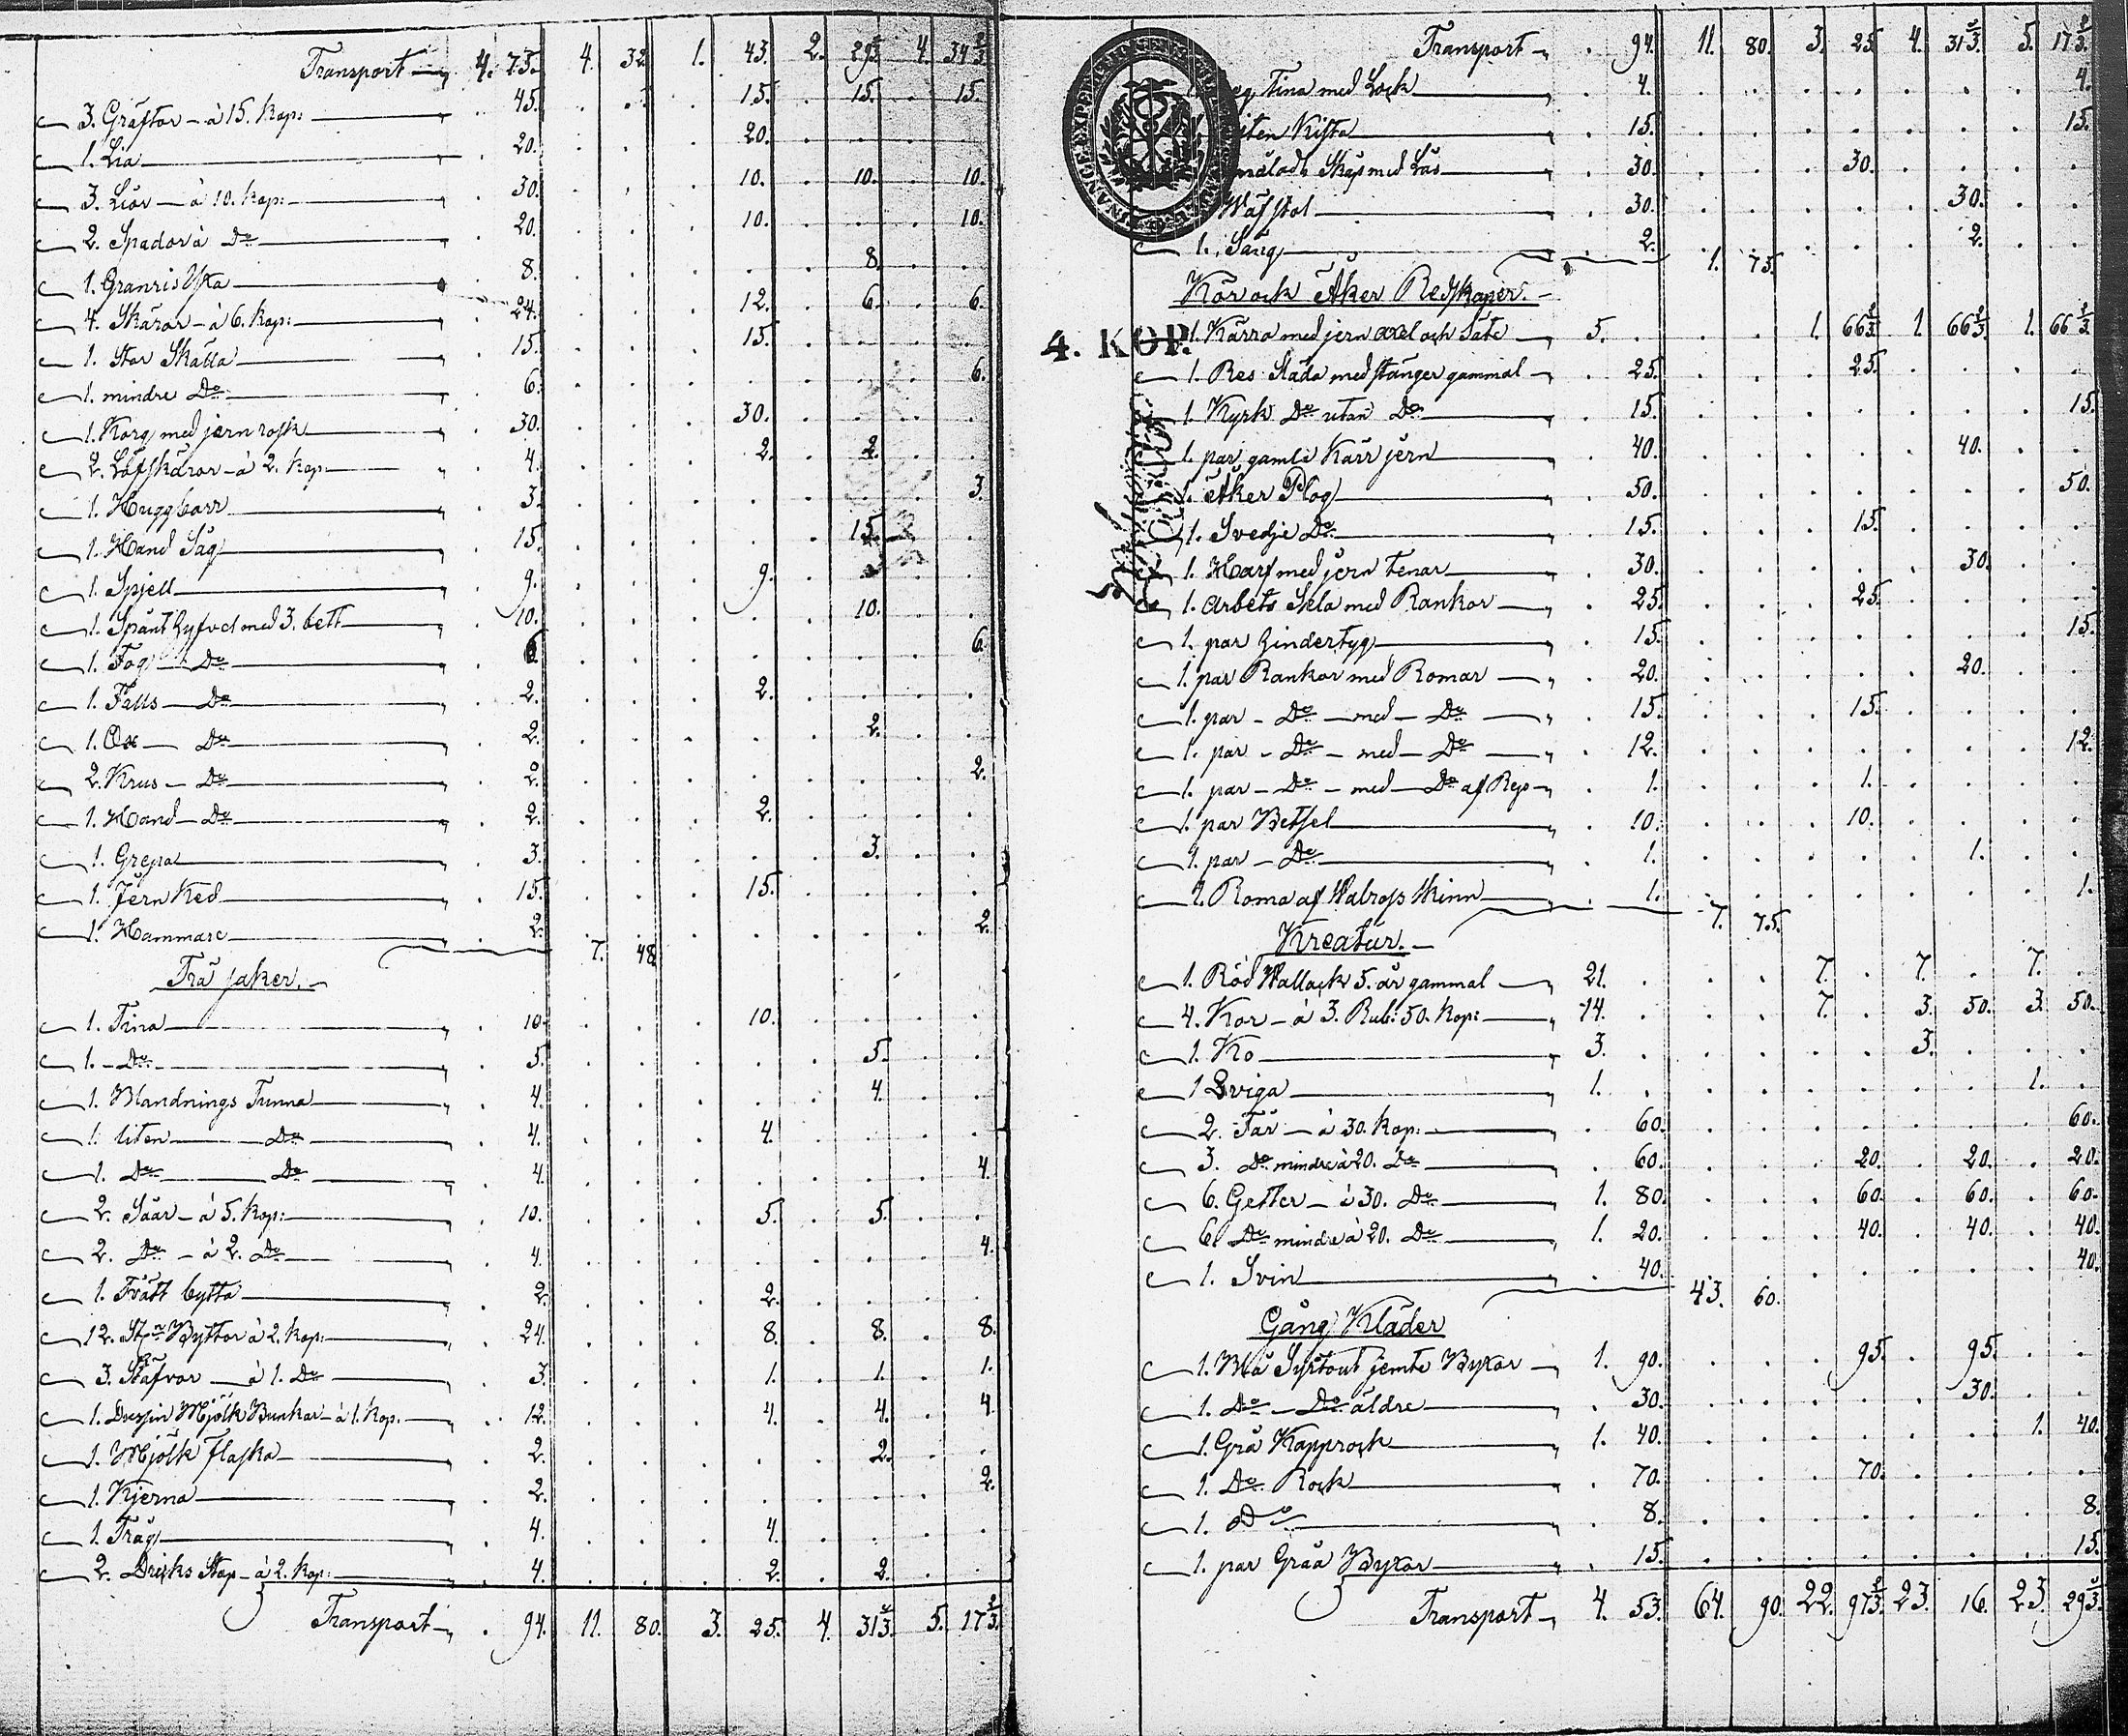 Transport 4. 75. 4. 32 1. 43. 2. 29⅓ 4. 34⅔
3. Gräftor à 15. Kop: 45. 15. 15. 15.
1. Lia 20. 20.
3. Liör à 10. Kop: 30. 10. 10. 10.
2. Spador à Do 20. 10. 10.
1. Granris Yxa 8. 8.
4. Skäror à 6. Kop: 24. 12. 6. 6.
1. Stor Skälla 15. 15.
1. mindre Do 6. 6.
1. Korg med jern 30. 30.
2. Löfskäror à 2. Kop 4. 2. 2.
1. Huggbarr 3. 3.
1. Hand Såg 15. 15.
1. Spjell 9. 9.
1. Spånt hyfvel med 3. bett 10. 10.
1. Fog Do 6. 6.
1. Falls Do 2. 2.
1. Ox Do 2. 2.
2. Krus Do 2. 2.
1. Hand Do 2. 2.
1. Grepa 3. 3.
1. Jern Ked 15. 15.
1. Hammare 2. 2.
7. 48
Trä saker.
1. Tina 10. 10.
1. Do 5. 5.
1. Blandnings Tunna 4. 4.
1. liten Do 4. 4.
1. Do Do 4. 4.
2. Såar à 5. Kop: 10. 5. 5.
2. Do à 2. Do 4. 4.
1. Tvätt bytta 2. 2.
12. St Byttor à 2. Kop: 24. 8. 8. 8.
3. Stäfvor à 1. Do 3. 1. 1. 1.
1. Dussin Mjölk Bunkar à 1. Kop. 12. 4. 4. 4
1. Mjölk Flaska 2. 2.
1. Kjerna 2. 2.
1. Tråg 4. 4.
2. Dricks Stop à 2. Kop: 4. 2. 2.
Transport 94. 11. 80. 3. 25. 4. 31⅓. 5. 17⅔.
Transport 94. 11. 80. 3. 25 4. 31⅓. 5. 17⅔.
Tina med Lock 4. 4.
Kista 15. 15.
Skåp med Lås 30. 30.
Wäfstol 30. 30.
1. Säng 2. 2.
1. 75.
Kör och Åker Redskaper.
4. KOP.
1. Kärra med jern axel och Säte 5. 1. 66⅔ 1. 66⅔ 1. 66⅔
1. Res Släda med stänger gammal 25. 25.
1. Kyrk Do utan Do 15. 15.
1. par gamla Kärr jern 40. 40.
1. Åker Plog 50. 50.
1. Svedje Do 15. 15.
1. Harf med jern tenar 30. 30.
1. Arbets Sela med Rankor 25. 25.
1. par hindertyg 15. 15.
1. par Rankor med Romar 20. 20.
1. par Do med Do 15. 15.
1. par Do med Do 12. 12.
1. par Do med Do af Rep 1. 1.
1. par Betsel 10. 10.
1. par Do 1. 1.
1. Roma af Walross skinn 1. 1.
7. 75.
Kreatur.
1. Röd Wallack 5. år gammal 21. 7. 7. 7.
4. Kor à 3. Rub: 50. Kop: 14. 7. 3. 50. 3. 50.
1. Ko 3. 3.
1 Qviga 1. 1.
2. Får à 30. Kop: 60. 60.
3. Do mindre à 20. Do 60. 20. 20. 20.
6. Getter à 30. Do 1. 80. 60. 60. 60.
6. Do mindre à 20. Do 1. 20. 40. 40. 40.
1. Svin 40. 40.
43. 60.
Gång Kläder
1. Blå Syrtout jemte Byxor 1. 90. 95. 95.
1. Do Do äldre 30. 30.
1. Grå Kapprock 1. 40. 1. 40.
1. Do Rock 70. 70.
1. Do 8. 8.
1. par Gråa Byxor 15. 15.
Transport 4. 53. 64. 90. 22. 97⅔. 23. 16. 23. 29⅓.